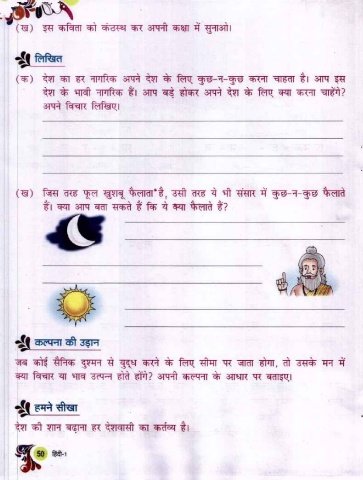 (ख) इस कविता को कंठस्थ कर अपनी कक्षा में सुनाओ।
लिखित
(क) देश का हर नागरिक अपने देश के लिए कुछ-न-कुछ करना चाहता है। आप इस
देश के भावी नागरिक हैं। आप बड़े होकर अपने देश के लिए क्या करना चाहेंगे?
अपने विचार लिखिए।
(ख) जिस तरह फूल खुशबू फैलाता है, उसी तरह ये भी संसार में कुछ-न-कुछ फैलाते
हैं। क्या आप बता सकते हैं कि ये क्या फैलाते हैं?
कल्पना की उड़ान
जब कोई सैनिक दुश्मन से युद्ध करने के लिए सीमा पर जाता होगा, तो उसके मन में
क्या विचार या भाव उत्पन्न होते होंगे? अपनी कल्पना के आधार पर बताइए।
हमने सीखा
देश की शान बढ़ाना हर देशवासी का कर्तव्य है।
50 हिंदी-1